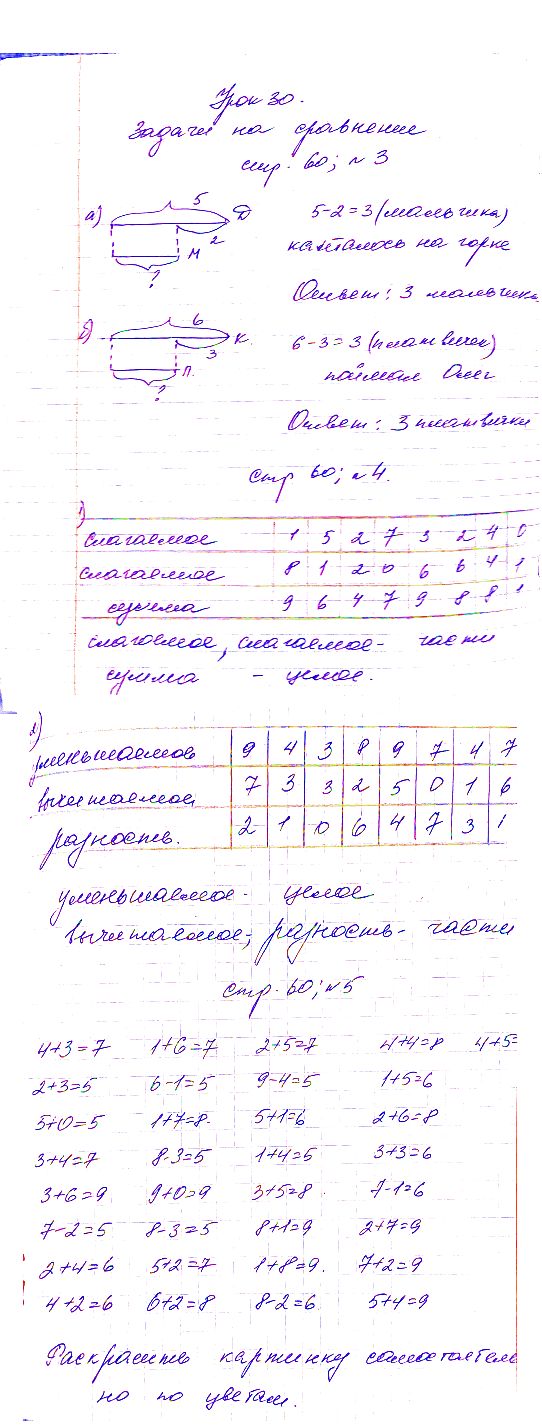 Урок 30.
Задачи на сравнение
стр. 60; №3
а) 5 Д 2 М ?
5-2=3 (мальчика)
каталось на горке
Ответ: 3 мальчика
б) 6 К. 3 П. ?
6-3=3 (плотвички)
поймал Олег
Ответ: 3 плотвички
стр 60; №4.
1)
слагаемое 1 5 2 7 3 2 4 0
слагаемое 8 1 2 0 6 6 4 1
сумма 9 6 4 7 9 8 8 1
слагаемое, слагаемое - части
сумма - целое.
2)
уменьшаемое 9 4 3 8 9 7 4 7
вычитаемое 7 3 3 2 5 0 1 6
разность. 2 1 0 6 4 7 3 1
уменьшаемое - целое
вычитаемое; разность - части
стр. 60; №5
4+3=7 1+6=7 2+5=7 4+4=8 4+5=
2+3=5 6-1=5 9-4=5 1+5=6
5+0=5 1+7=8. 5+1=6 2+6=8
3+4=7 8-3=5 1+4=5 3+3=6
3+6=9 9+0=9 3+5=8 7-1=6
7-2=5 8-3=5 8+1=9 2+7=9
2+4=6 5+2=7 1+8=9. 7+2=9
4+2=6 6+2=8 8-2=6 5+4=9
Раскрасить картинку самостоятель
но по цветам.